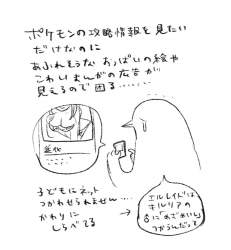 ポケモンの攻略情報を見たい
だけなのに
あふれそうな おっぱいの絵や
こわいまんがの広告が
見えるので困る……
進化
子どもにネット
つかわせられません……
かわりに
しらべてる
→
エルレイドは
キルリアの
♂に「めざめいし」
つかうんだって